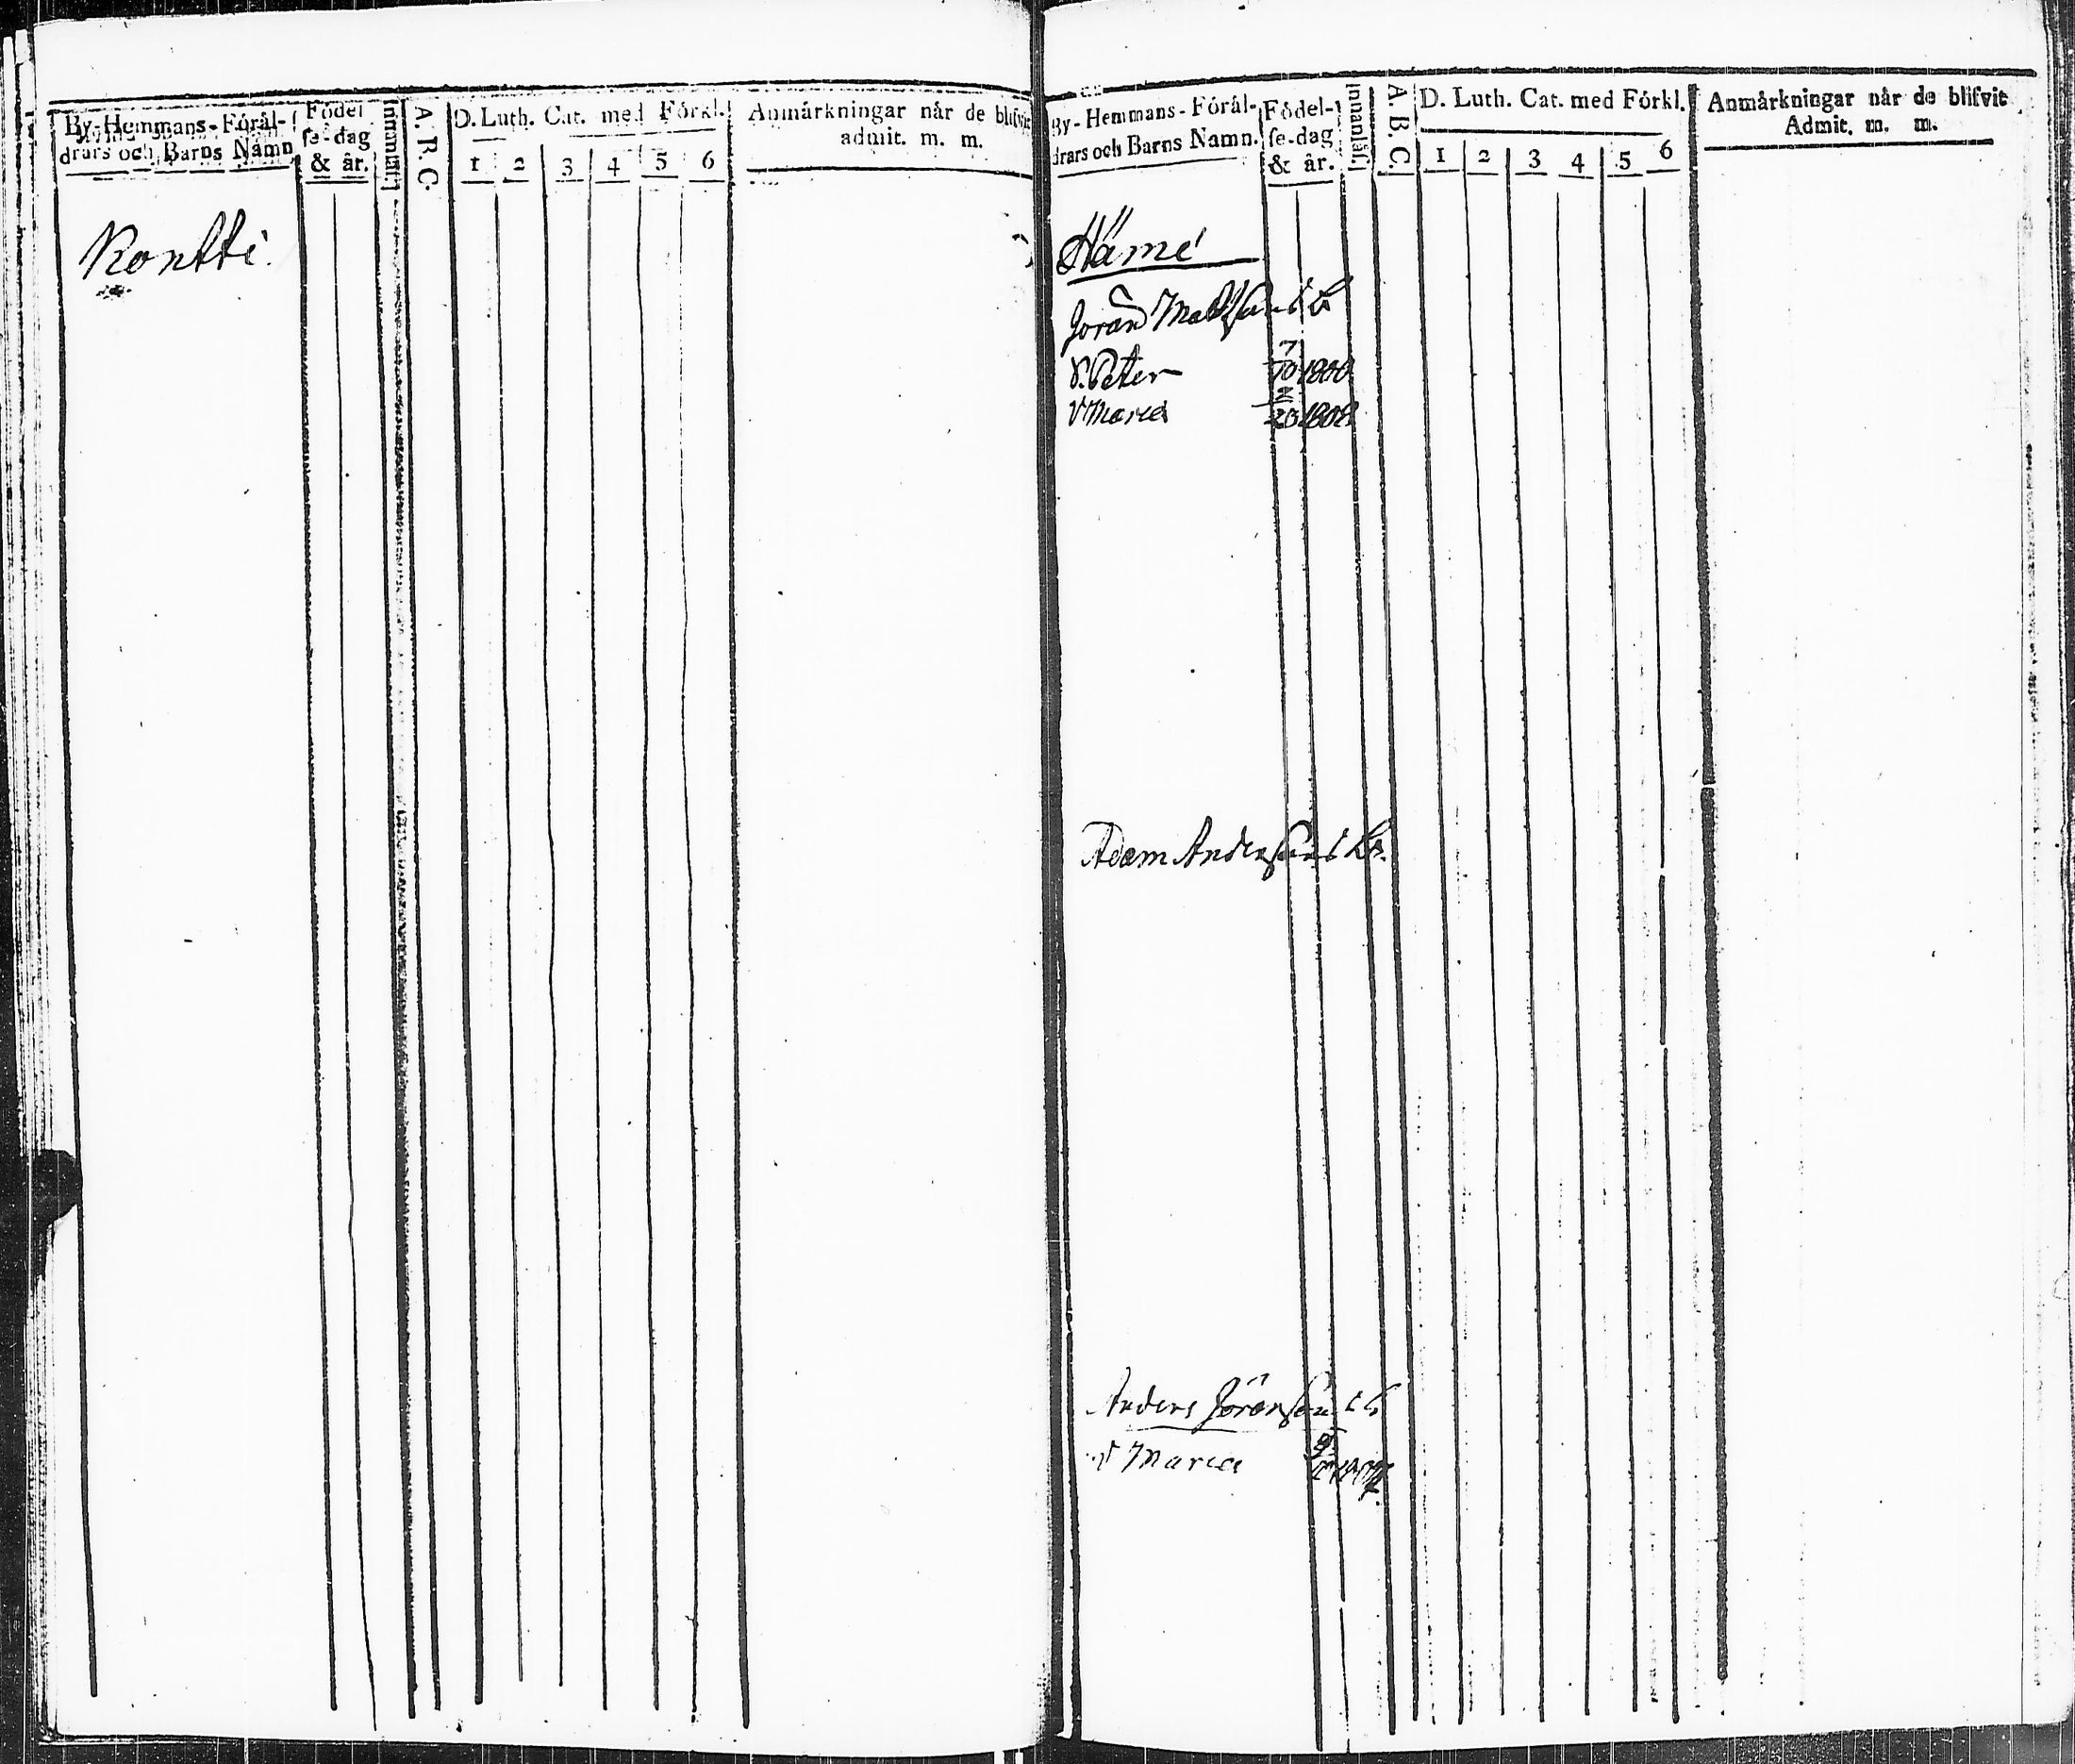 By-Hemmans-Förål-
drars och Barns Namn
Födel
se-dag
& år.
Innanläs.
A. B. C.
D. Luth. Cat. med Förkl.
1 2 3 4 5 6
Anmårkningar når de blifvit
admit. m. m.
Kontti
By-Hemmans-Förål-
drars och Barns Namn.
Födel-
se-dag
& år.
Innanläs.
A. B. C.
D. Luth. Cat. med Förkl.
1 2 3 4 5 6
Anmårkningar når de blifvit
Admit. m. m.
Håme
Jöran Mattsons b
S. Peter 7/10 1800
Maria 2/20
Adam Andersons b.
Anders Jöransons b
Maria